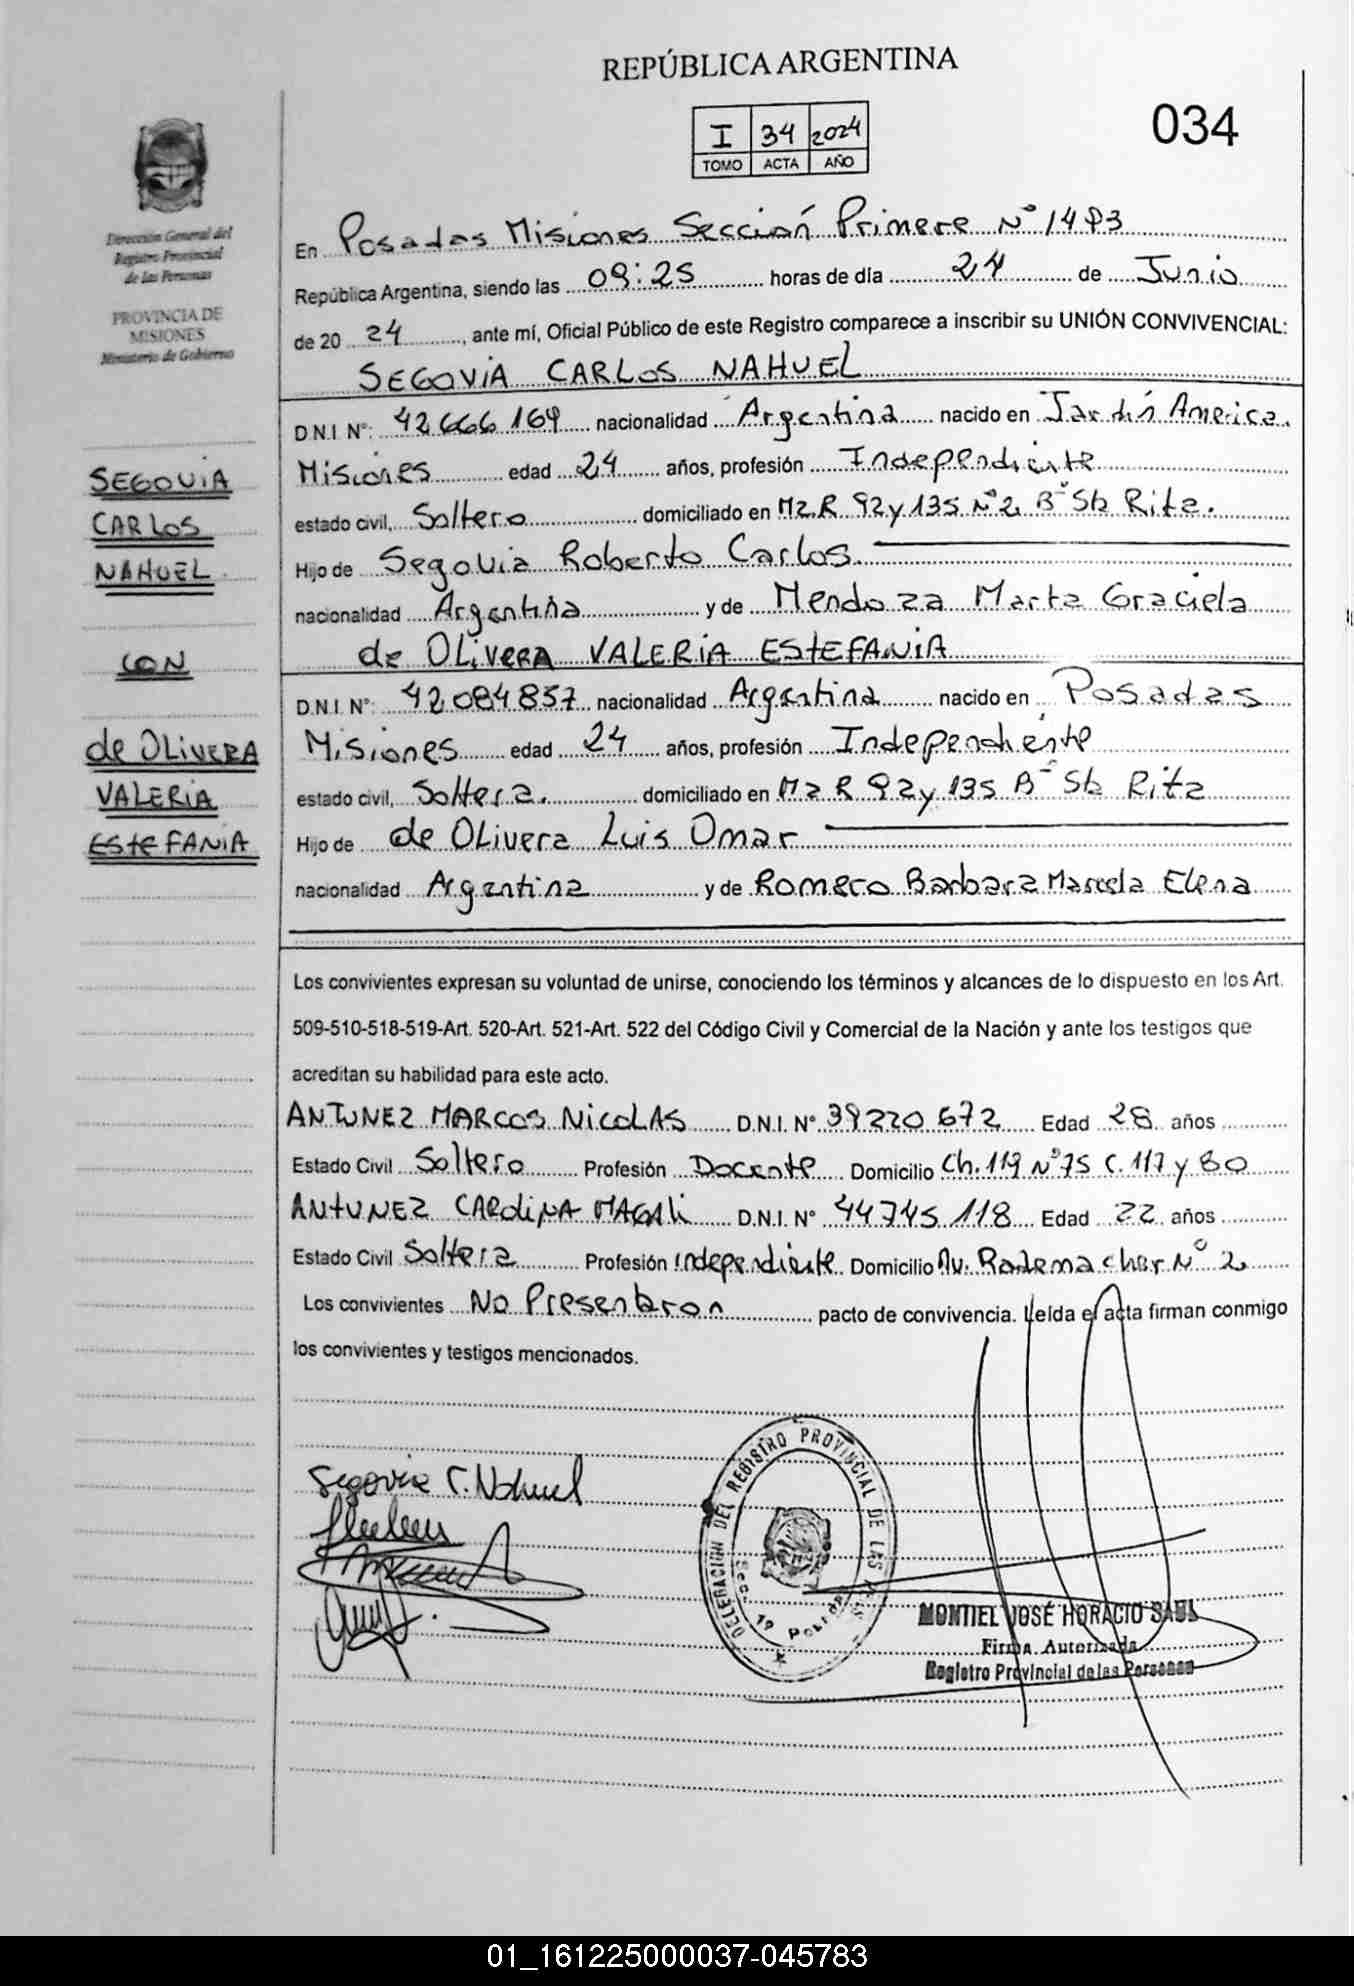 REPÚBLICA ARGENTINA
I 34 2024
TOMO ACTA AÑO
034
Dirección General del
Registro Provincial
de las Personas
PROVINCIA DE
MISIONES
Ministerio de Gobierno
SEGOVIA
CARLOS
NAHUEL
CON
de OLIVERA
VALERIA
ESTEFANIA
En Posadas Misiones Sección Primera Nº 1493
República Argentina, siendo las 09:25 horas de día 24 de Junio
de 20 24, ante mí, Oficial Público de este Registro comparece a inscribir su UNIÓN CONVIVENCIAL:
SEGOVIA CARLOS NAHUEL
D.N.I. Nº: 42666164 nacionalidad Argentina nacido en Jardín America
Misiones edad 24 años, profesión Independiente
estado civil, Soltero domiciliado en Mz R 92 y 135 Nº 2 Bº Sta Rita.
Hijo de Segovia Roberto Carlos
nacionalidad Argentina y de Mendoza Marta Graciela
de OLIVERA VALERIA ESTEFANIA
D.N.I. Nº: 42084857 nacionalidad Argentina nacido en Posadas
Misiones edad 24 años, profesión Independiente
estado civil, Soltera. domiciliado en Mz R 92 y 135 Bº Sta Rita
Hijo de de OLivera Luis Omar
nacionalidad Argentina y de Romero Barbara Marcela Elena
Los convivientes expresan su voluntad de unirse, conociendo los términos y alcances de lo dispuesto en los Art.
509-510-518-519-Art. 520-Art. 521-Art. 522 del Código Civil y Comercial de la Nación y ante los testigos que
acreditan su habilidad para este acto.
ANTUNEZ MARCOS NICOLAS D.N.I. Nº 39220672 Edad 28 años
Estado Civil Soltero Profesión Docente Domicilio Ch. 119 Nº 75 C. 117 y 80
ANTUNEZ CAROLINA MAGALI D.N.I. Nº 44745118 Edad 22 años
Estado Civil Soltera Profesión independiente Domicilio Av. Rademacher Nº 2
Los convivientes No Presentaron pacto de convivencia. Leída el acta firman conmigo
los convivientes y testigos mencionados.
Segovia C. Nahuel
DELEGACION DEL REGISTRO PROVINCIAL DE LAS
Secc. 1ª
MONTIEL JOSÉ HORACIO SAUL
Firma Autorizada
Registro Provincial de las Personas
01_161225000037-045783